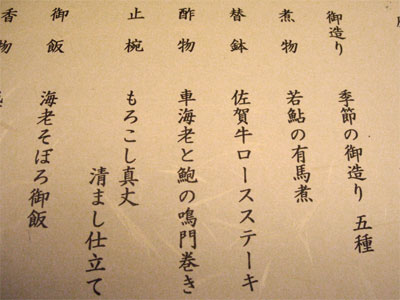 御造り 季節の御造り 五種
煮物 若鮎の有馬煮
替鉢 佐賀牛ロースステーキ
酢物 車海老と鮑の鳴門巻き
止椀 もろこし真丈
清まし仕立て
御飯 海老そぼろ御飯
香物